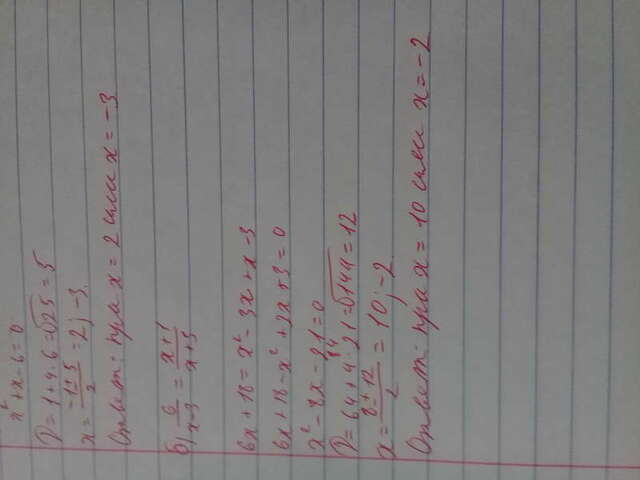 x² + x - 6 = 0
D = 1 + 4·6 = √25 = 5
x = (-1±5)/2 = 2; -3
Ответ: при x = 2 или x = -3
б) 6/(x-3) = (x+1)/(x+3)
6x + 18 = x² - 3x + x - 3
6x + 18 - x² + 2x + 3 = 0
x² - 8x - 21 = 0
D = 64 + 4·21 = √144 = 12
84
x = (8±12)/2 = 10; -2
Ответ: при x = 10 или x = -2